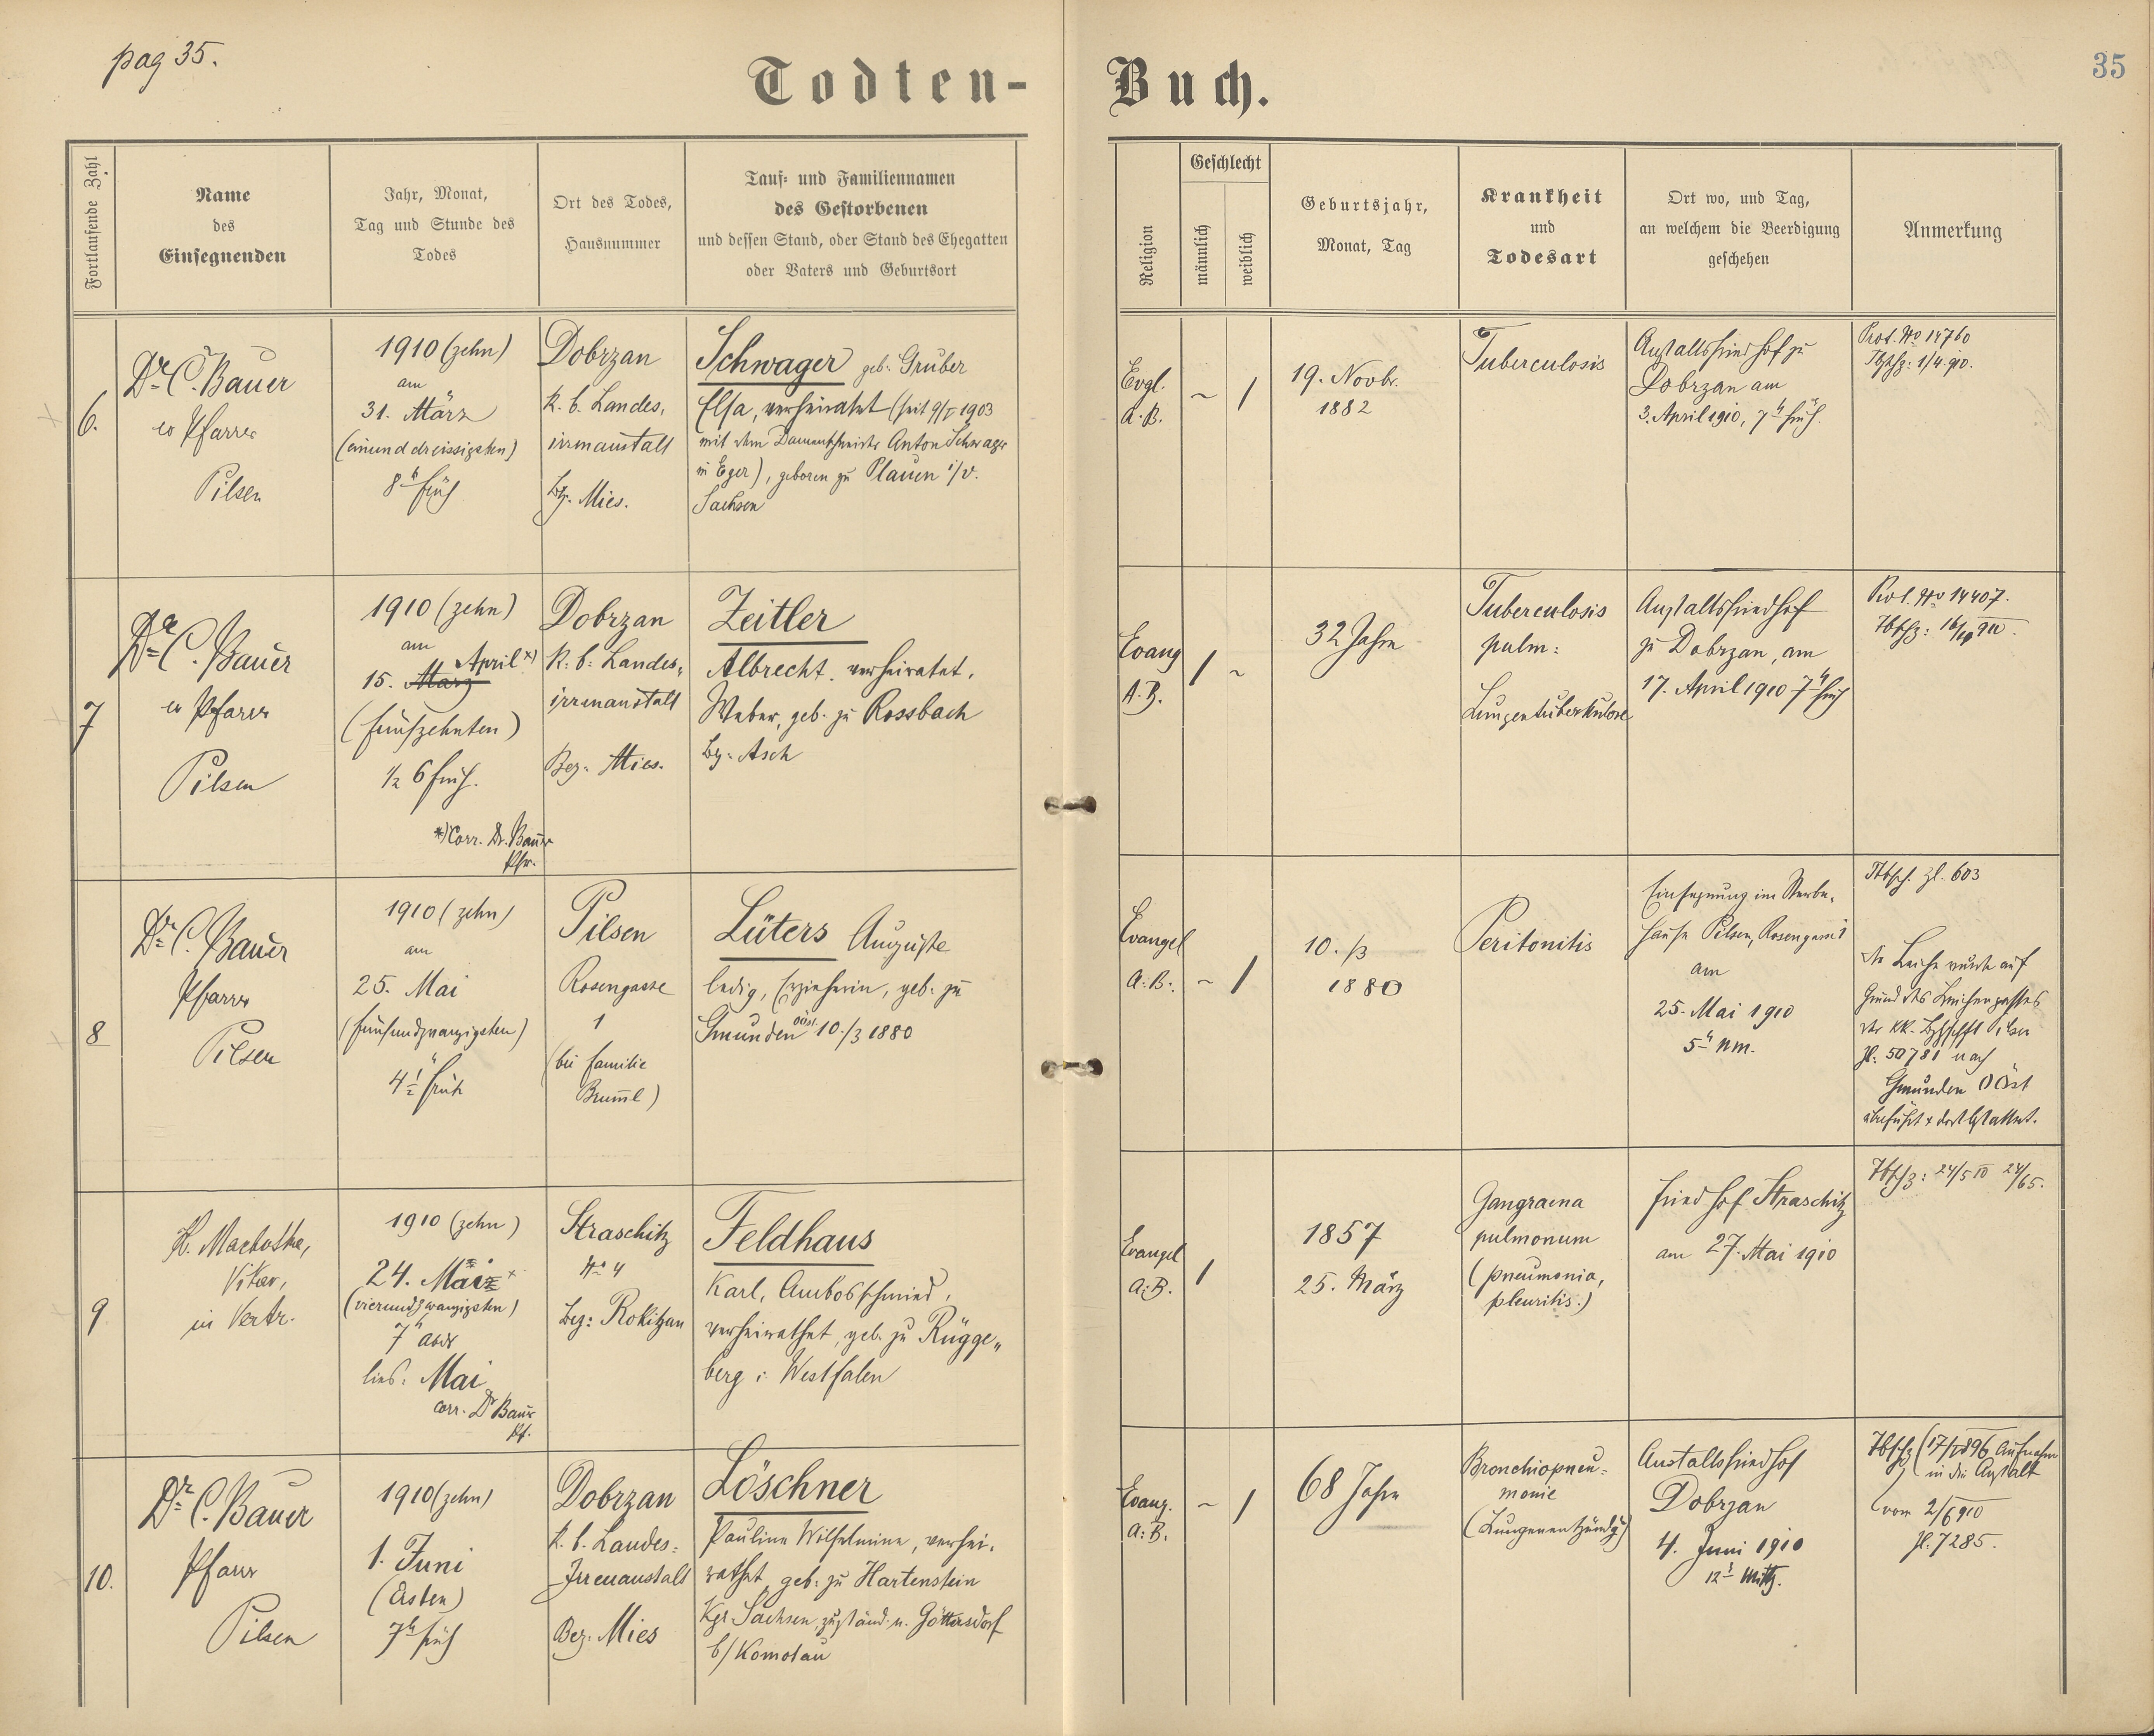 pag 35.
35
Todten-Buch.
Fortlaufende Zahl
Name
des
Einsegnenden
Jahr, Monat,
Tag und Stunde des
Todes
Ort des Todes,
Hausnummer
Tauf- und Familiennamen
des Gestorbenen
und dessen Stand, oder Stand des Ehegatten
oder Vaters und Geburtsort
Religion
Geschlecht
männlich
weiblich
Geburtsjahr,
Monat, Tag
Krankheit
und
Todesart
Ort wo, und Tag,
an welchem die Beerdigung
geschehen
Anmerkung
6.
Dr. C. Bauer
ev Pfarrer
Pilsen
1910 (zehn)
am
31. März
(einunddreissigsten)
8h früh
Dobrzan
k. b. Landes,
irrnanstalt
Bz. Mies.
Schwager geb. Gruber
Elsa, verheiratet (seit 9/I 1903
mit dem Anton Schwager
in Eger), geboren zu Plauen i/V.
Sachsen
Evgl.
A. B.
~ /
19. Novbr.
1882
Tuberculosis
Anstaltsfriedhof zu
Dobrzan am
3. April 1910, 7h früh.
Prot. No 14760
Tbschz: 1/4 910.
7
Dr. C. Bauer
ev Pfarrer
Pilsen
1910 (zehn)
am
April x)
15. März
(fünfzehnten)
1/2 6 früh.
*) Corr. Dr. Bauer
Pfr.
Dobrzan
k. b. Landes,
irrenanstalt
Bez. Mies.
Zeitler
Albrecht, verheiratet,
Weber, geb. zu Rossbach
Bz. Asch
Evang
A. B.
/ ~
32 Jahre
Tuberculosis
pulm:
Lungentuberkulose
Anstaltsfriedhof
zu Dobrzan, am
17. April 1910 7h früh
Prot. No 14407.
Tbschz: 16/IV 910.
8
Dr. C. Bauer
Pfarrer
Pilsen
1910 (zehn)
am
25. Mai
(fünfundzwanzigsten)
4h früh
Pilsen
Rosengasse
1
(bei Familie
Bruml)
Lüters Auguste
ledig, Erzieherin, geb. zu
Gmunden OÖst. 10./3 1880
Evangel
A. B.
~ /
10. /3
1880
Peritonitis
Einsegnung im Sterbe,
hause Pilsen, Rosengasse 1
am
25. Mai 1910
5h nm.
Tbsch. Zl. 603
die Leiche wurde auf
Grund des Leichenpasses
der kk. Bzhschft Pilsen
Zl. 50781 nach
Gmunden OÖst
überführt + dort bestattet.
9
Vikar,
in Vertr.
1910 (zehn)
24. März x
(vierundzwanzigsten)
7h abds
lies: Mai
corr. Dr Bauer
Pf.
Straschitz
No 4
Bez: Rokitzan
Feldhaus
Karl, Ambosschmied,
verheirathet, geb. zu Rügge,,
berg i. Westfalen
Evangel
A. B.
/
1857
25. März
Gangraena
pulmonum
(pneumonia,
pleuritis.)
Friedhof Straschitz
am 27. Mai 1910
Tbschz: 24/5 10 24/65.
10.
Dr. C. Bauer
Pfarrer
Pilsen
1910 (zehn)
1. Juni
(Ersten)
7h früh
Dobrzan
k. b. Landes-
Irrenanstalt
Bez. Mies
Löschner
Pauline Wilhelmine, verhei,
rathet, geb. zu Hartenstein
Kgr. Sachsen, zuständ. n. Göttersdorf
b/Komotau
Evang.
A. B.
~ /
68 Jahre
Bronchiopneu-
monie
(Lungenentzündg)
Anstaltsfriedhof
Dobrzan
4. Juni 1910
12h Mittg.
Tbschz (17/I 896 Aufnahme
in die Anstalt
vom 2/6 910
Zl. 7285.